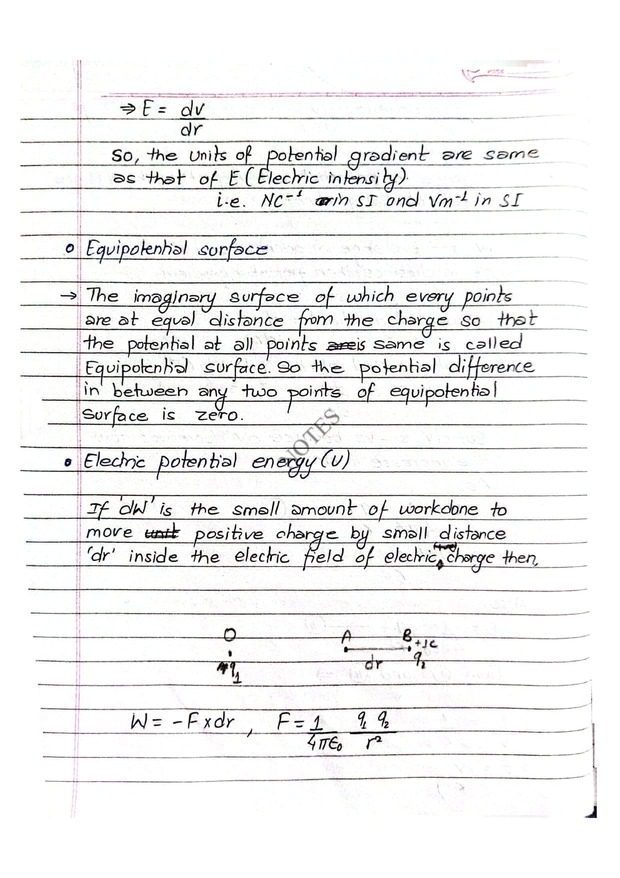 ⇒ E = dv
dr
So, the units of potential gradient are same
as that of E (Electric intensity).
i.e. NC⁻¹ in SI and Vm⁻¹ in SI
• Equipotential surface
→ The imaginary surface of which every points
are at equal distance from the charge so that
the potential at all points is same is called
Equipotential surface. So the potential difference
in between any two points of equipotential
surface is zero.
NOTES
• Electric potential energy (U)
If 'dW' is the small amount of workdone to
move unit positive charge by small distance
'dr' inside the electric field of electric charge then,
O A B +1C
q₁ dr q₂
W = -F x dr , F = 1 q₁ q₂
4πε₀ r²